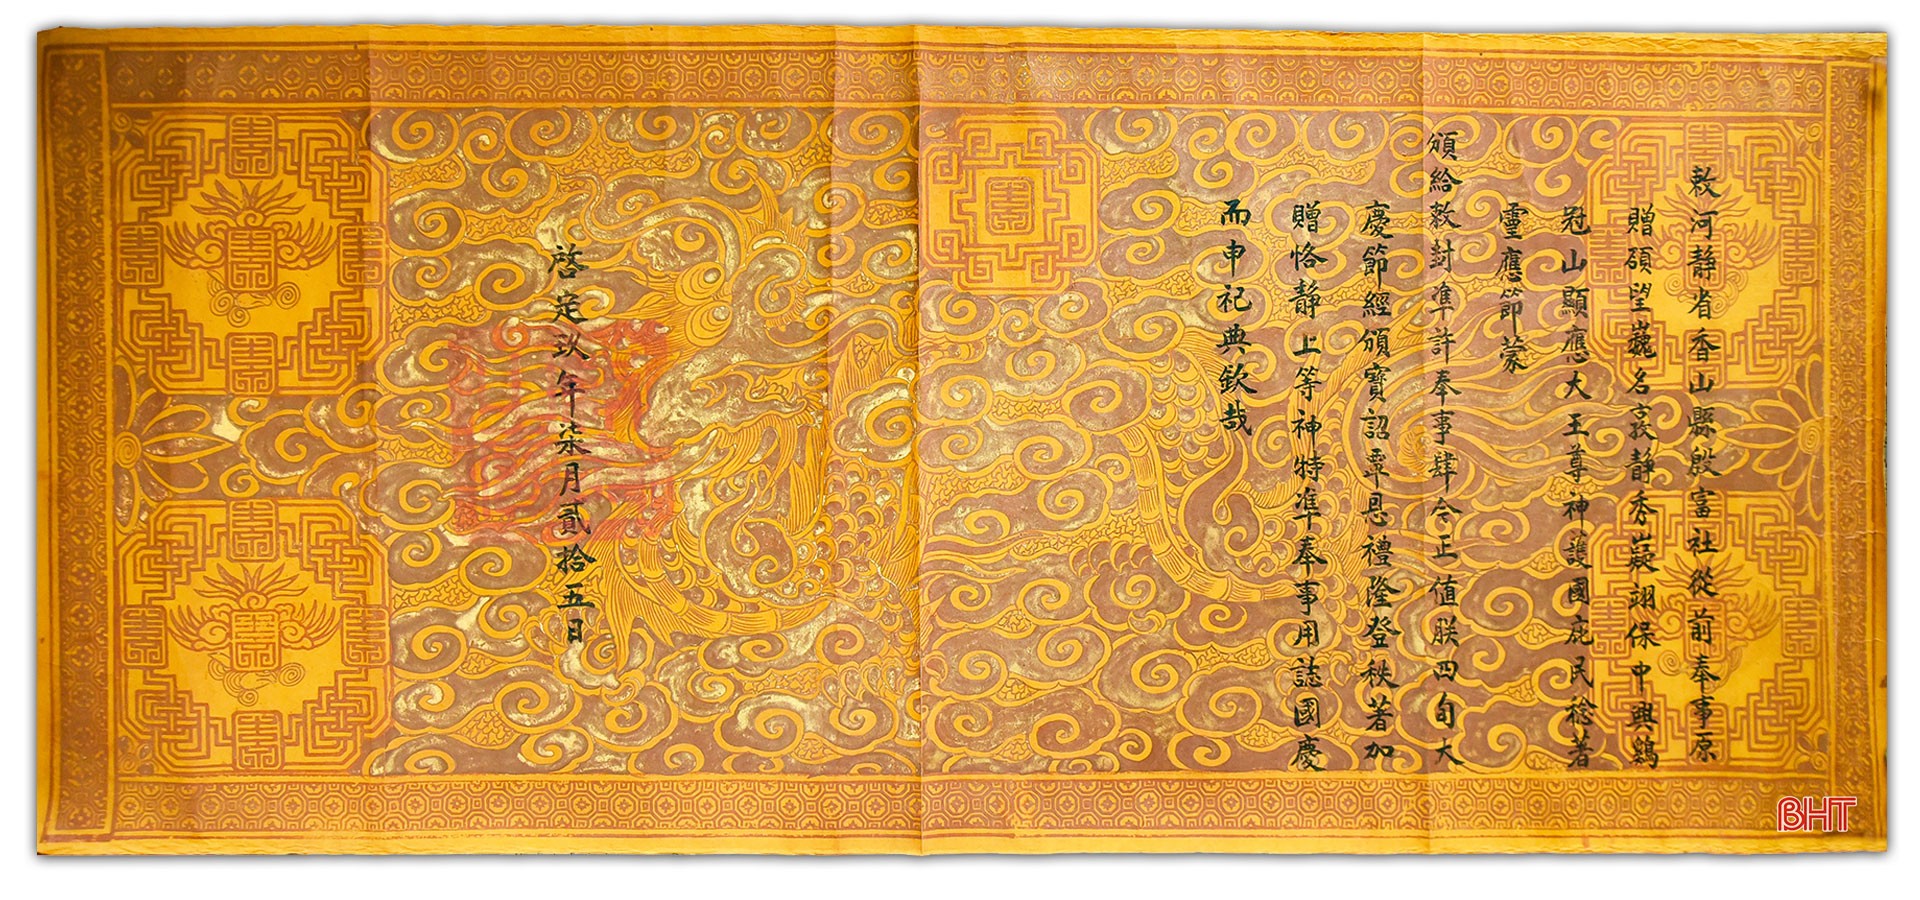 敕河靜省香山縣殷富社從前奉事原
贈碩望巍名亥靜秀嶷翊保中興鷄
冠山顯應大王尊神護國庇民稔著
靈應節蒙
頒給敕封準許奉事肆今正值朕四旬大
慶節經頒寶詔覃恩禮隆登秩著加
贈恪靜上等神特準奉事用誌國慶
而申祀典欽哉
啓定玖年柒月貳拾五日
BHT